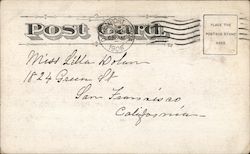 Post Card.
1906
PLACE THE
POSTAGE STAMP
HERE
Miss Lilla Dolan
1824 Green St
San Francisco
California